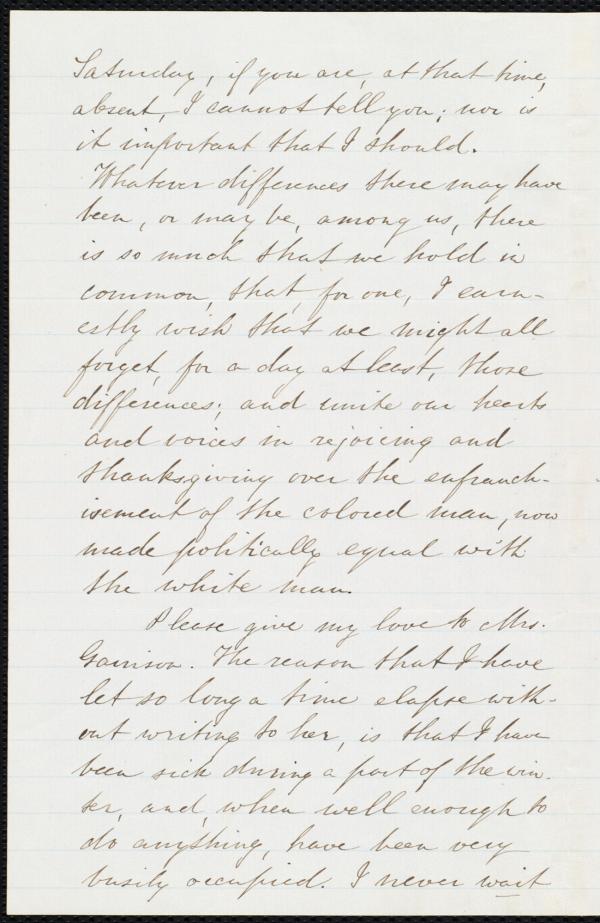 Saturday, if you are, at that time,
absent, I cannot tell you; nor is
it important that I should.
Whatever differences there may have
been, or may be, among us, there
is so much that we hold in
common, that, for one, I earn-
estly wish that we might all
forget, for a day at least, those
differences; and unite our hearts
and voices in rejoicing and
thanksgiving over the enfranch-
isement of the colored man, now
made politically equal with
the white man.
Please give my love to Mrs.
Garrison. The reason that I have
let so long a time elapse with-
out writing to her, is that I have
been sick during a part of the win-
ter, and, when well enough to
do anything, have been very
busily occupied. I never wait